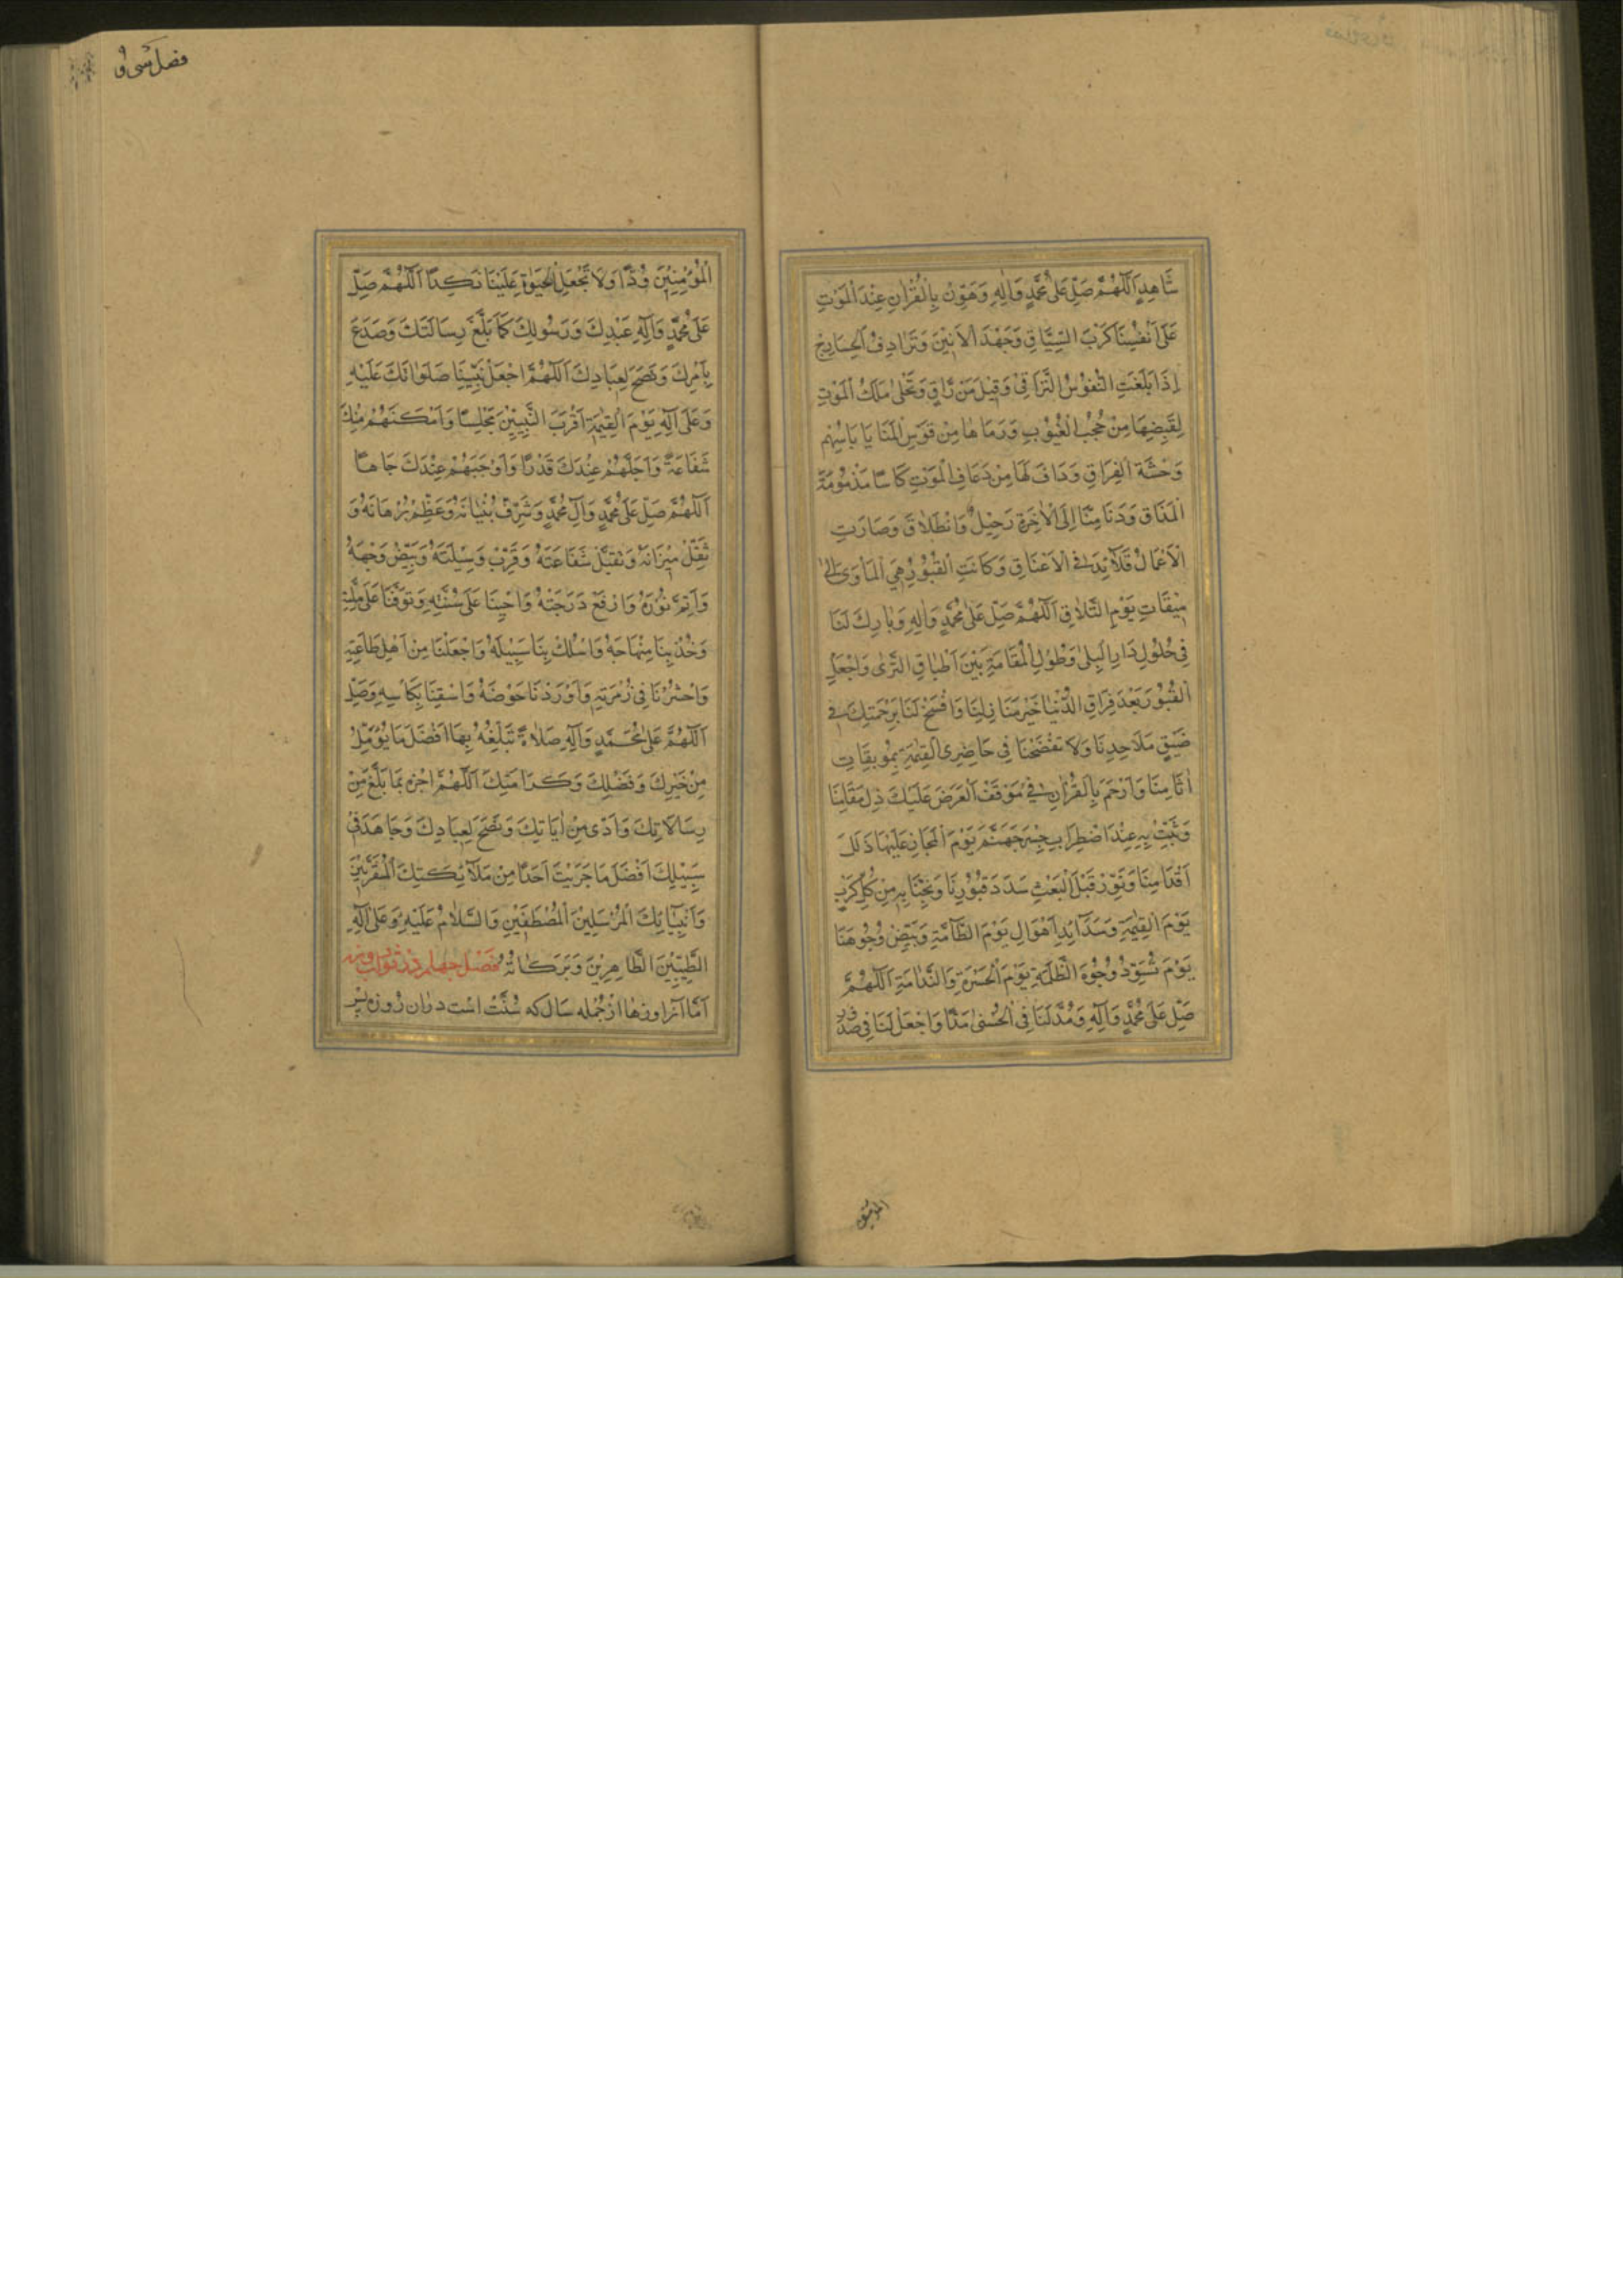 شَاهِدٍ اَللّٰهُمَّ صَلِّ عَلٰى مُحَمَّدٍ وَاٰلِهِ وَهَوِّنْ بِالْقُرْاٰنِ عِنْدَ الْمَوْتِ
عَلٰى اَنْفُسِنَا كَرْبَ السِّيَاقِ وَجَهْدَ الْاَنِيْنِ وَتَرَادُفَ الْحَشَارِجِ
اِذَا بَلَغَتِ النُّفُوْسُ التَّرَاقِىَ وَقِيْلَ مَنْ رَاقٍ وَتَجَلّٰى مَلَكُ الْمَوْتِ
لِقَبْضِهَا مِنْ حُجُبِ الْغُيُوْبِ وَرَمَاهَا مِنْ قَوْسِ الْمَنَايَا بِاَسْهُمِ
وَحْشَةِ الْفِرَاقِ وَدَافَ لَهَا مِنْ ذُعَافِ الْمَوْتِ كَاْسًا مَذْمُوْمَةَ
الْمَذَاقِ وَدَنَا مِنَّا اِلَى الْاٰخِرَةِ رَحِيْلٌ وَانْطِلَاقٌ وَصَارَتِ
الْاَعْمَالُ قَلَآئِدَ فِى الْاَعْنَاقِ وَكَانَتِ الْقُبُوْرُ هِىَ الْمَاْوٰى اِلٰى
مِيْقَاتِ يَوْمِ التَّلَاقِ اَللّٰهُمَّ صَلِّ عَلٰى مُحَمَّدٍ وَاٰلِهِ وَبَارِكْ لَنَا
فِى حُلُوْلِ دَارِ الْبِلٰى وَطُوْلِ الْمُقَامَةِ بَيْنَ اَطْبَاقِ الثَّرٰى وَاجْعَلِ
الْقُبُوْرَ بَعْدَ فِرَاقِ الدُّنْيَا خَيْرَ مَنَازِلِنَا وَافْسَحْ لَنَا بِرَحْمَتِكَ فِى
ضَيِّقِ مَلَاحِدِنَا وَلَا تَفْضَحْنَا فِى حَاضِرِى الْقِيٰمَةِ بِمُوْبِقَاتِ
اٰثَامِنَا وَارْحَمْ بِالْقُرْاٰنِ فِى مَوْقِفِ الْعَرْضِ عَلَيْكَ ذُلَّ مَقَامِنَا
وَثَبِّتْ بِهِ عِنْدَ اضْطِرَابِ جِسْرِ جَهَنَّمَ يَوْمَ الْمَجَازِ عَلَيْهَا زَلَلَ
اَقْدَامِنَا وَنَوِّرْ قَبْلَ الْبَعْثِ سُدَفَ قُبُوْرِنَا وَنَجِّنَا بِهِ مِنْ كُلِّ كَرْبٍ
يَوْمَ الْقِيٰمَةِ وَشَدَآئِدِ اَهْوَالِ يَوْمِ الطَّآمَّةِ وَبَيِّضْ وُجُوْهَنَا
يَوْمَ تَسْوَدُّ وُجُوْهُ الظَّلَمَةِ يَوْمَ الْحَسْرَةِ وَالنَّدَامَةِ اَللّٰهُمَّ
صَلِّ عَلٰى مُحَمَّدٍ وَاٰلِهِ وَمُدَّ لَنَا فِى الْحُسْنٰى مَدًّا وَاجْعَلْ لَنَا فِى صُدُوْرِ
فصل سی و
الْمُؤْمِنِيْنَ وُدًّا وَلَا تَجْعَلِ الْحَيٰوةَ عَلَيْنَا نَكِدًا اَللّٰهُمَّ صَلِّ
عَلٰى مُحَمَّدٍ وَآلِهِ عَبْدِكَ وَرَسُوْلِكَ كَمَا بَلَّغَ رِسَالَتَكَ وَصَدَعَ
بِاَمْرِكَ وَنَصَحَ لِعِبَادِكَ اَللّٰهُمَّ اجْعَلْ نَبِيَّنَا صَلَوَاتُكَ عَلَيْهِ
وَعَلٰى آلِهِ يَوْمَ الْقِيٰمَةِ اَقْرَبَ النَّبِيِّيْنَ مَجْلِسًا وَاَمْكَنَهُمْ مِنْكَ
شَفَاعَةً وَاَجَلَّهُمْ عِنْدَكَ قَدْرًا وَاَوْجَبَهُمْ عِنْدَكَ جَاهًا
اَللّٰهُمَّ صَلِّ عَلٰى مُحَمَّدٍ وَآلِ مُحَمَّدٍ وَشَرِّفْ بُنْيَانَهُ وَعَظِّمْ بُرْهَانَهُ وَ
ثَقِّلْ مِيْزَانَهُ وَتَقَبَّلْ شَفَاعَتَهُ وَقَرِّبْ وَسِيْلَتَهُ وَبَيِّضْ وَجْهَهُ
وَاَتِمَّ نُوْرَهُ وَارْفَعْ دَرَجَتَهُ وَاَحْيِنَا عَلٰى سُنَّتِهِ وَتَوَفَّنَا عَلٰى مِلَّتِهِ
وَخُذْ بِنَا مِنْهَاجَهُ وَاسْلُكْ بِنَا سَبِيْلَهُ وَاجْعَلْنَا مِنْ اَهْلِ طَاعَتِهِ
وَاحْشُرْنَا فِى زُمْرَتِهِ وَاَوْرِدْنَا حَوْضَهُ وَاسْقِنَا بِكَاْسِهِ وَصَلِّ
اَللّٰهُمَّ عَلٰى مُحَمَّدٍ وَآلِهِ صَلَاةً تُبَلِّغُهُ بِهَا اَفْضَلَ مَا يُؤَمِّلُ
مِنْ خَيْرِكَ وَفَضْلِكَ وَكَرَامَتِكَ اَللّٰهُمَّ اجْزِهِ بِمَا بَلَّغَ مِنْ
رِسَالَاتِكَ وَاَدّٰى مِنْ اٰيَاتِكَ وَنَصَحَ لِعِبَادِكَ وَجَاهَدَ فِى
سَبِيْلِكَ اَفْضَلَ مَا جَزَيْتَ اَحَدًا مِنْ مَلَآئِكَتِكَ الْمُقَرَّبِيْنَ
وَاَنْبِيَآئِكَ الْمُرْسَلِيْنَ الْمُصْطَفَيْنَ وَالسَّلَامُ عَلَيْهِ وَعَلٰى آلِهِ
الطَّيِّبِيْنَ الطَّاهِرِيْنَ وَبَرَكَاتُهُ فصل چهلم در ثواب روزه
اَمَّا آنزا روزها از جمله سال که سُنّت است در آن روزه